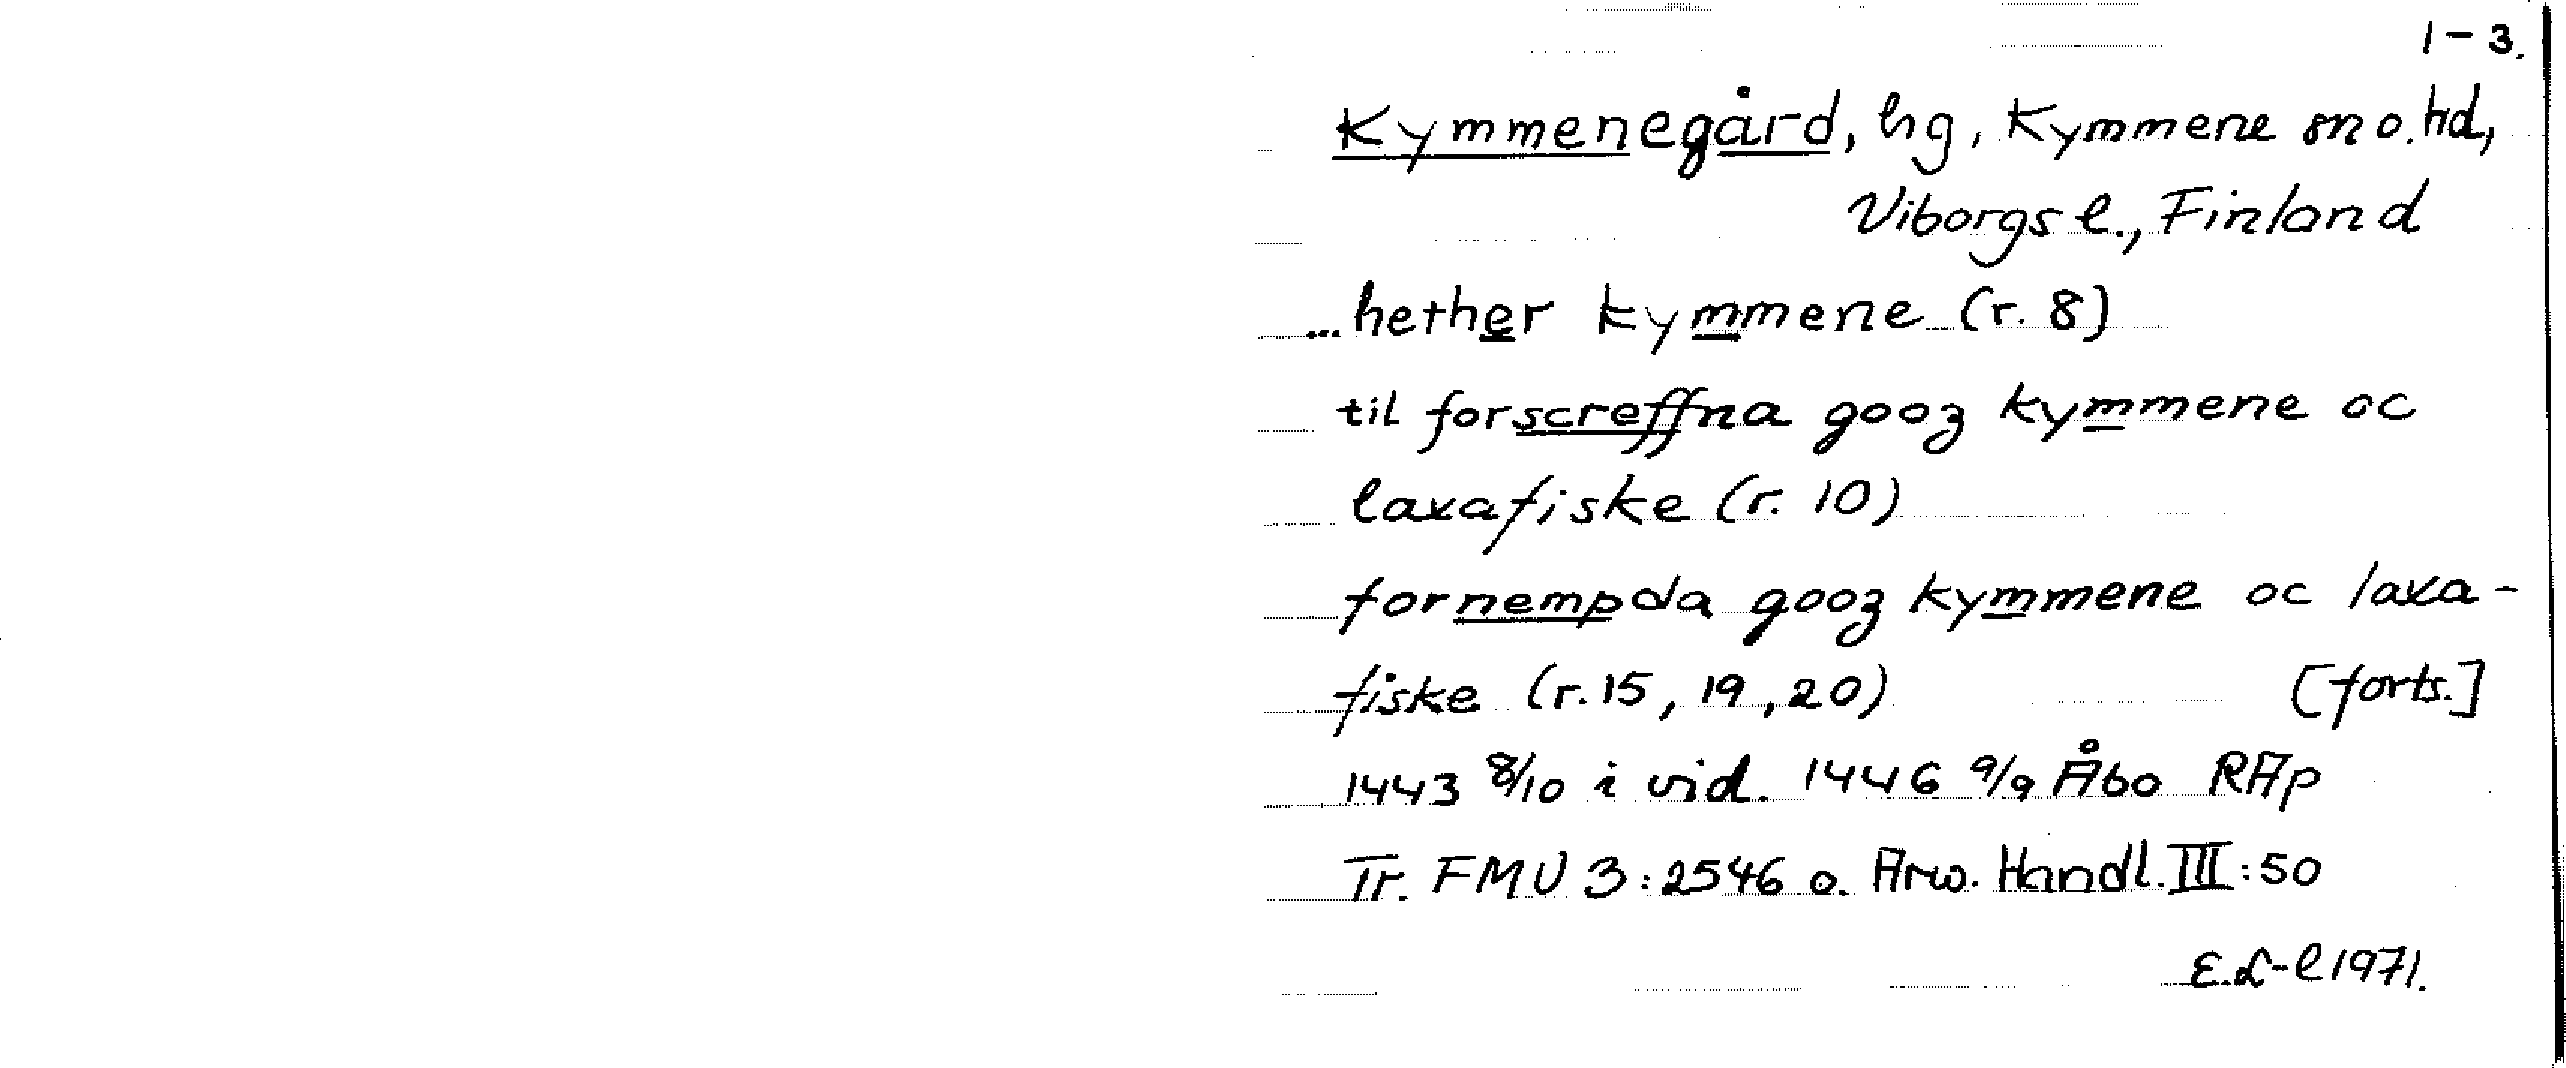 1-3.
Kymmenegård, hg, Kymmene sn o. hd,
Viborgs l., Finland
... hether kymmene (r. 8)
til forscreffna gooz kymmene oc
laxafiske (r. 10)
fornempda gooz kymmene oc laxa-
fiske (r. 15, 19, 20) [forts.]
1443 8/10 i vid. 1446 9/9 Åbo RAp
Tr. FMU 3:2546 o. Arw. Handl. III:50
E.L-l 1971.